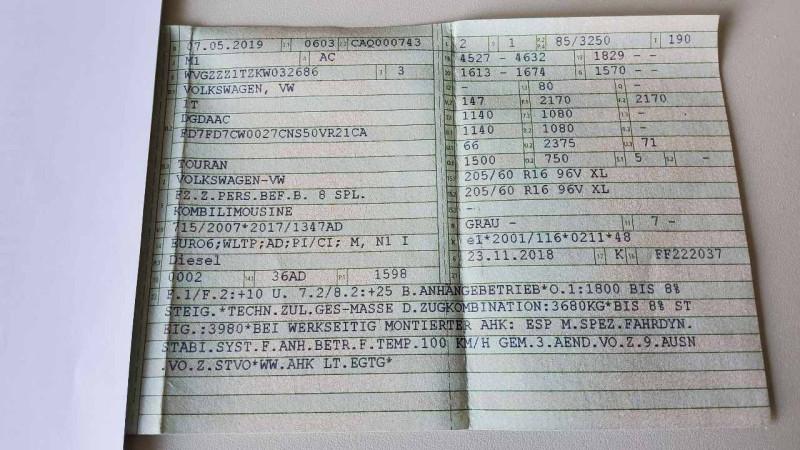 07.05.2019 0603 CAQ000743
M1 AC
WVGZZZ1TZKW032686 3
VOLKSWAGEN, VW
1T
DGDAAC
FD7FD7CW0027CNS50VR21CA
TOURAN
VOLKSWAGEN-VW
FZ.Z.PERS.BEF.B. 8 SPL.
KOMBILIMOUSINE
715/2007*2017/1347AD
EURO6;WLTP;AD;PI/CI; M, N1 I
Diesel
0002 36AD 1598
2 1 85/3250 190
4527 - 4632 1829 - -
1613 - 1674 1570 - -
- 80 -
147 2170 2170
1140 1080 - -
1140 1080 - -
66 2375 71
1500 750 5 -
205/60 R16 96V XL
205/60 R16 96V XL
-
GRAU - 7 -
e1*2001/116*0211*48
23.11.2018 K FF222037
F.1/F.2:+10 U. 7.2/8.2:+25 B.ANHÄNGEBETRIEB*O.1:1800 BIS 8%
STEIG.*TECHN.ZUL.GES-MASSE D.ZUGKOMBINATION:3680KG*BIS 8% ST
EIG.:3980*BEI WERKSEITIG MONTIERTER AHK: ESP M.SPEZ.FAHRDYN.
STABI.SYST.F.ANH.BETR.F.TEMP.100 KM/H GEM.3.AEND.VO.Z.9.AUSN
.VO.Z.STVO*WW.AHK LT.EGTG*